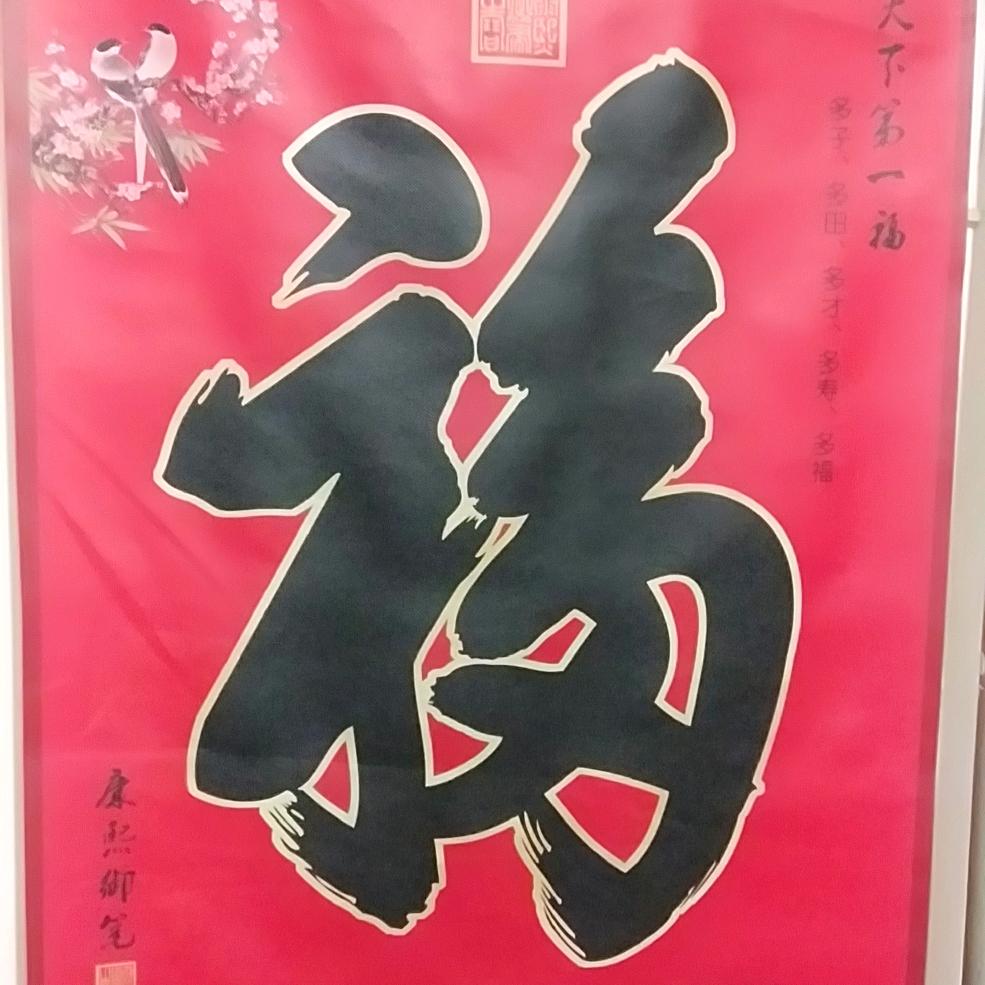 天下第一福
多子、多田、多才、多寿、多福
福
康熙御笔